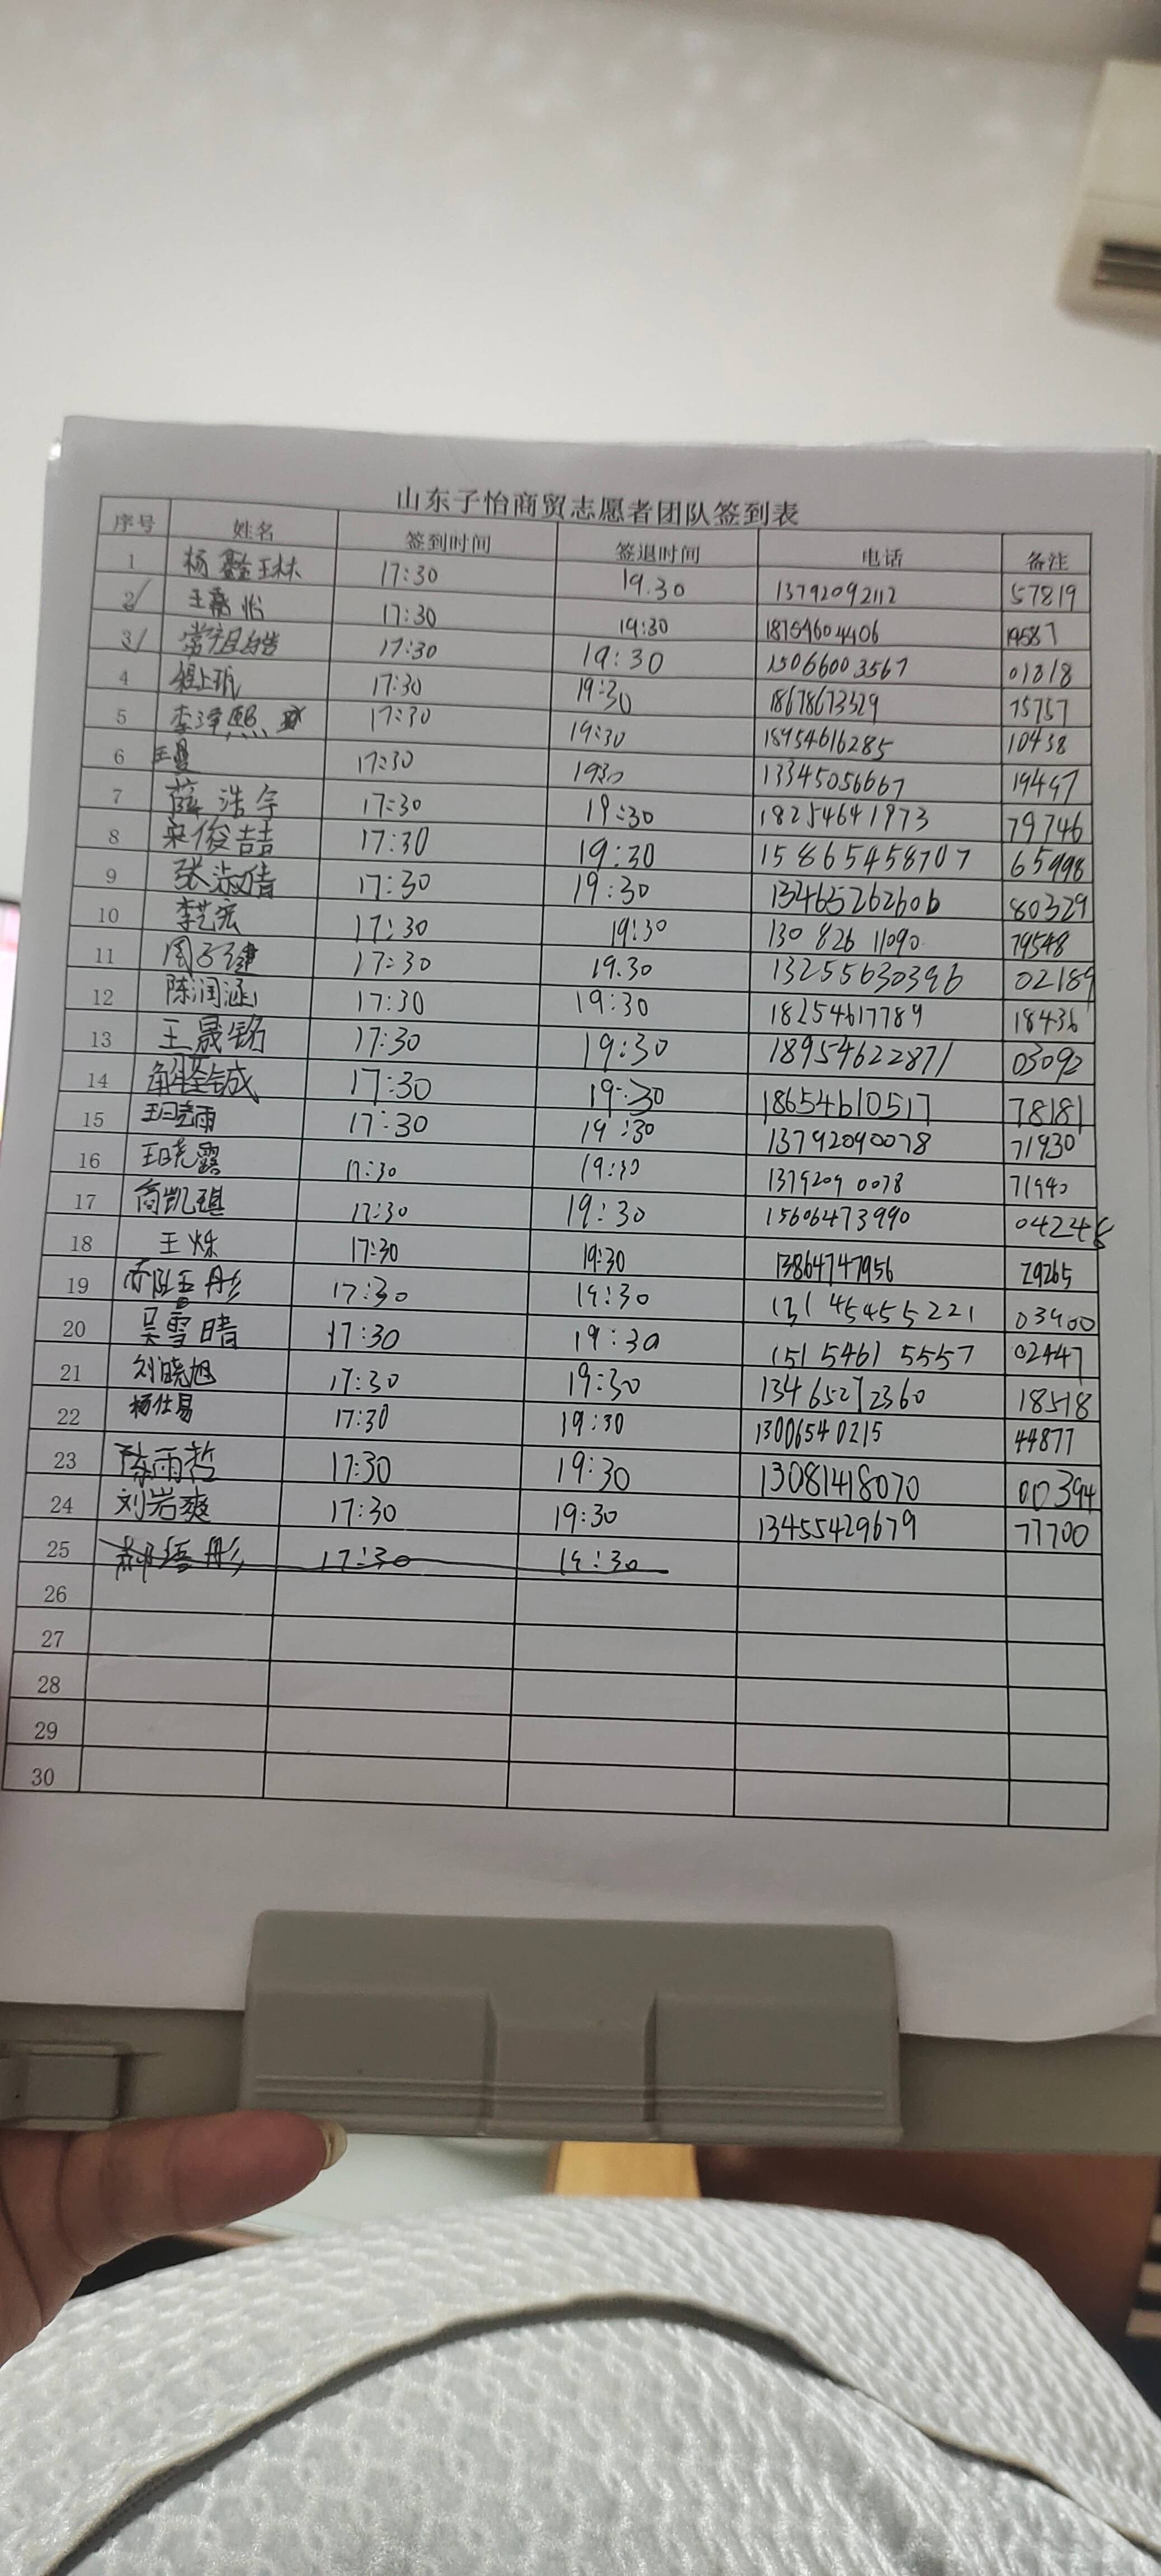 山东子怡商贸志愿者团队签到表
序号 姓名 签到时间 签退时间 电话 备注
1 杨鑫琳 17:30 19.30 13792092112 57819
2 王嘉怡 17:30 19:30 18154604406 19587
3 17:30 19:30 15066003567 01318
4 17:30 19:30 18678673329 75757
5 李泽熙 17:30 19:30 18954616285 10438
6 王曼 17:30 1930 13345056667 19497
7 薛浩宇 17:30 19:30 18254641973 79746
8 宋俊喆 17:30 19:30 15865458707 65998
9 张淑倩 17:30 19:30 13465262606 80329
10 李艺宏 17:30 19:30 130 826 11090 79548
11 周子健 17:30 19.30 13255630396 02189
12 陈润涵 17:30 19:30 18254617789 18436
13 王晟铭 17:30 19:30 18954622871 03092
14 17:30 19:30 18654610517 78181
15 17:30 19:30 13792090078 71930
16 王晓露 17:30 19:30 1379209 0078 71940
17 商凯琪 17:30 19:30 15606473990 04248
18 王烁 17:30 19:30 13864747956 29265
19 17:30 19:30 131 45455221 03400
20 吴雪晴 17:30 19:30 151 5461 5557 02447
21 刘晓旭 17:30 19:30 13465272360 18518
22 杨仕易 17:30 19:30 13006540215 44877
23 陈雨哲 17:30 19:30 13081418070 00394
24 刘岩爽 17:30 19:30 13455429679 77700
25 17:30 19:30
26
27
28
29
30